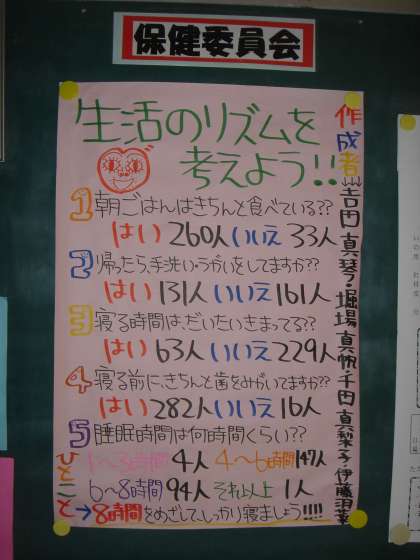 保健委員会
生活のリズムを
考えよう!!
1朝ごはんはきちんと食べている??
はい 260人 いいえ 33人
2帰ったら、手洗い・うがいをしてますか??
はい 131人 いいえ 161人
3寝る時間は、だいたいきまってる??
はい 63人 いいえ 229人
4寝る前に、きちんと歯をみがいてますか??
はい 282人 いいえ 16人
5睡眠時間は何時間くらい??
1~3時間 4人 4~6時間 147人
6~8時間 94人 それ以上 1人
ひとこと→8時間をめざして、しっかり寝ましょう!!!!
作成者…吉田真琴・堀場真帆・千田真梨子・伊藤羽